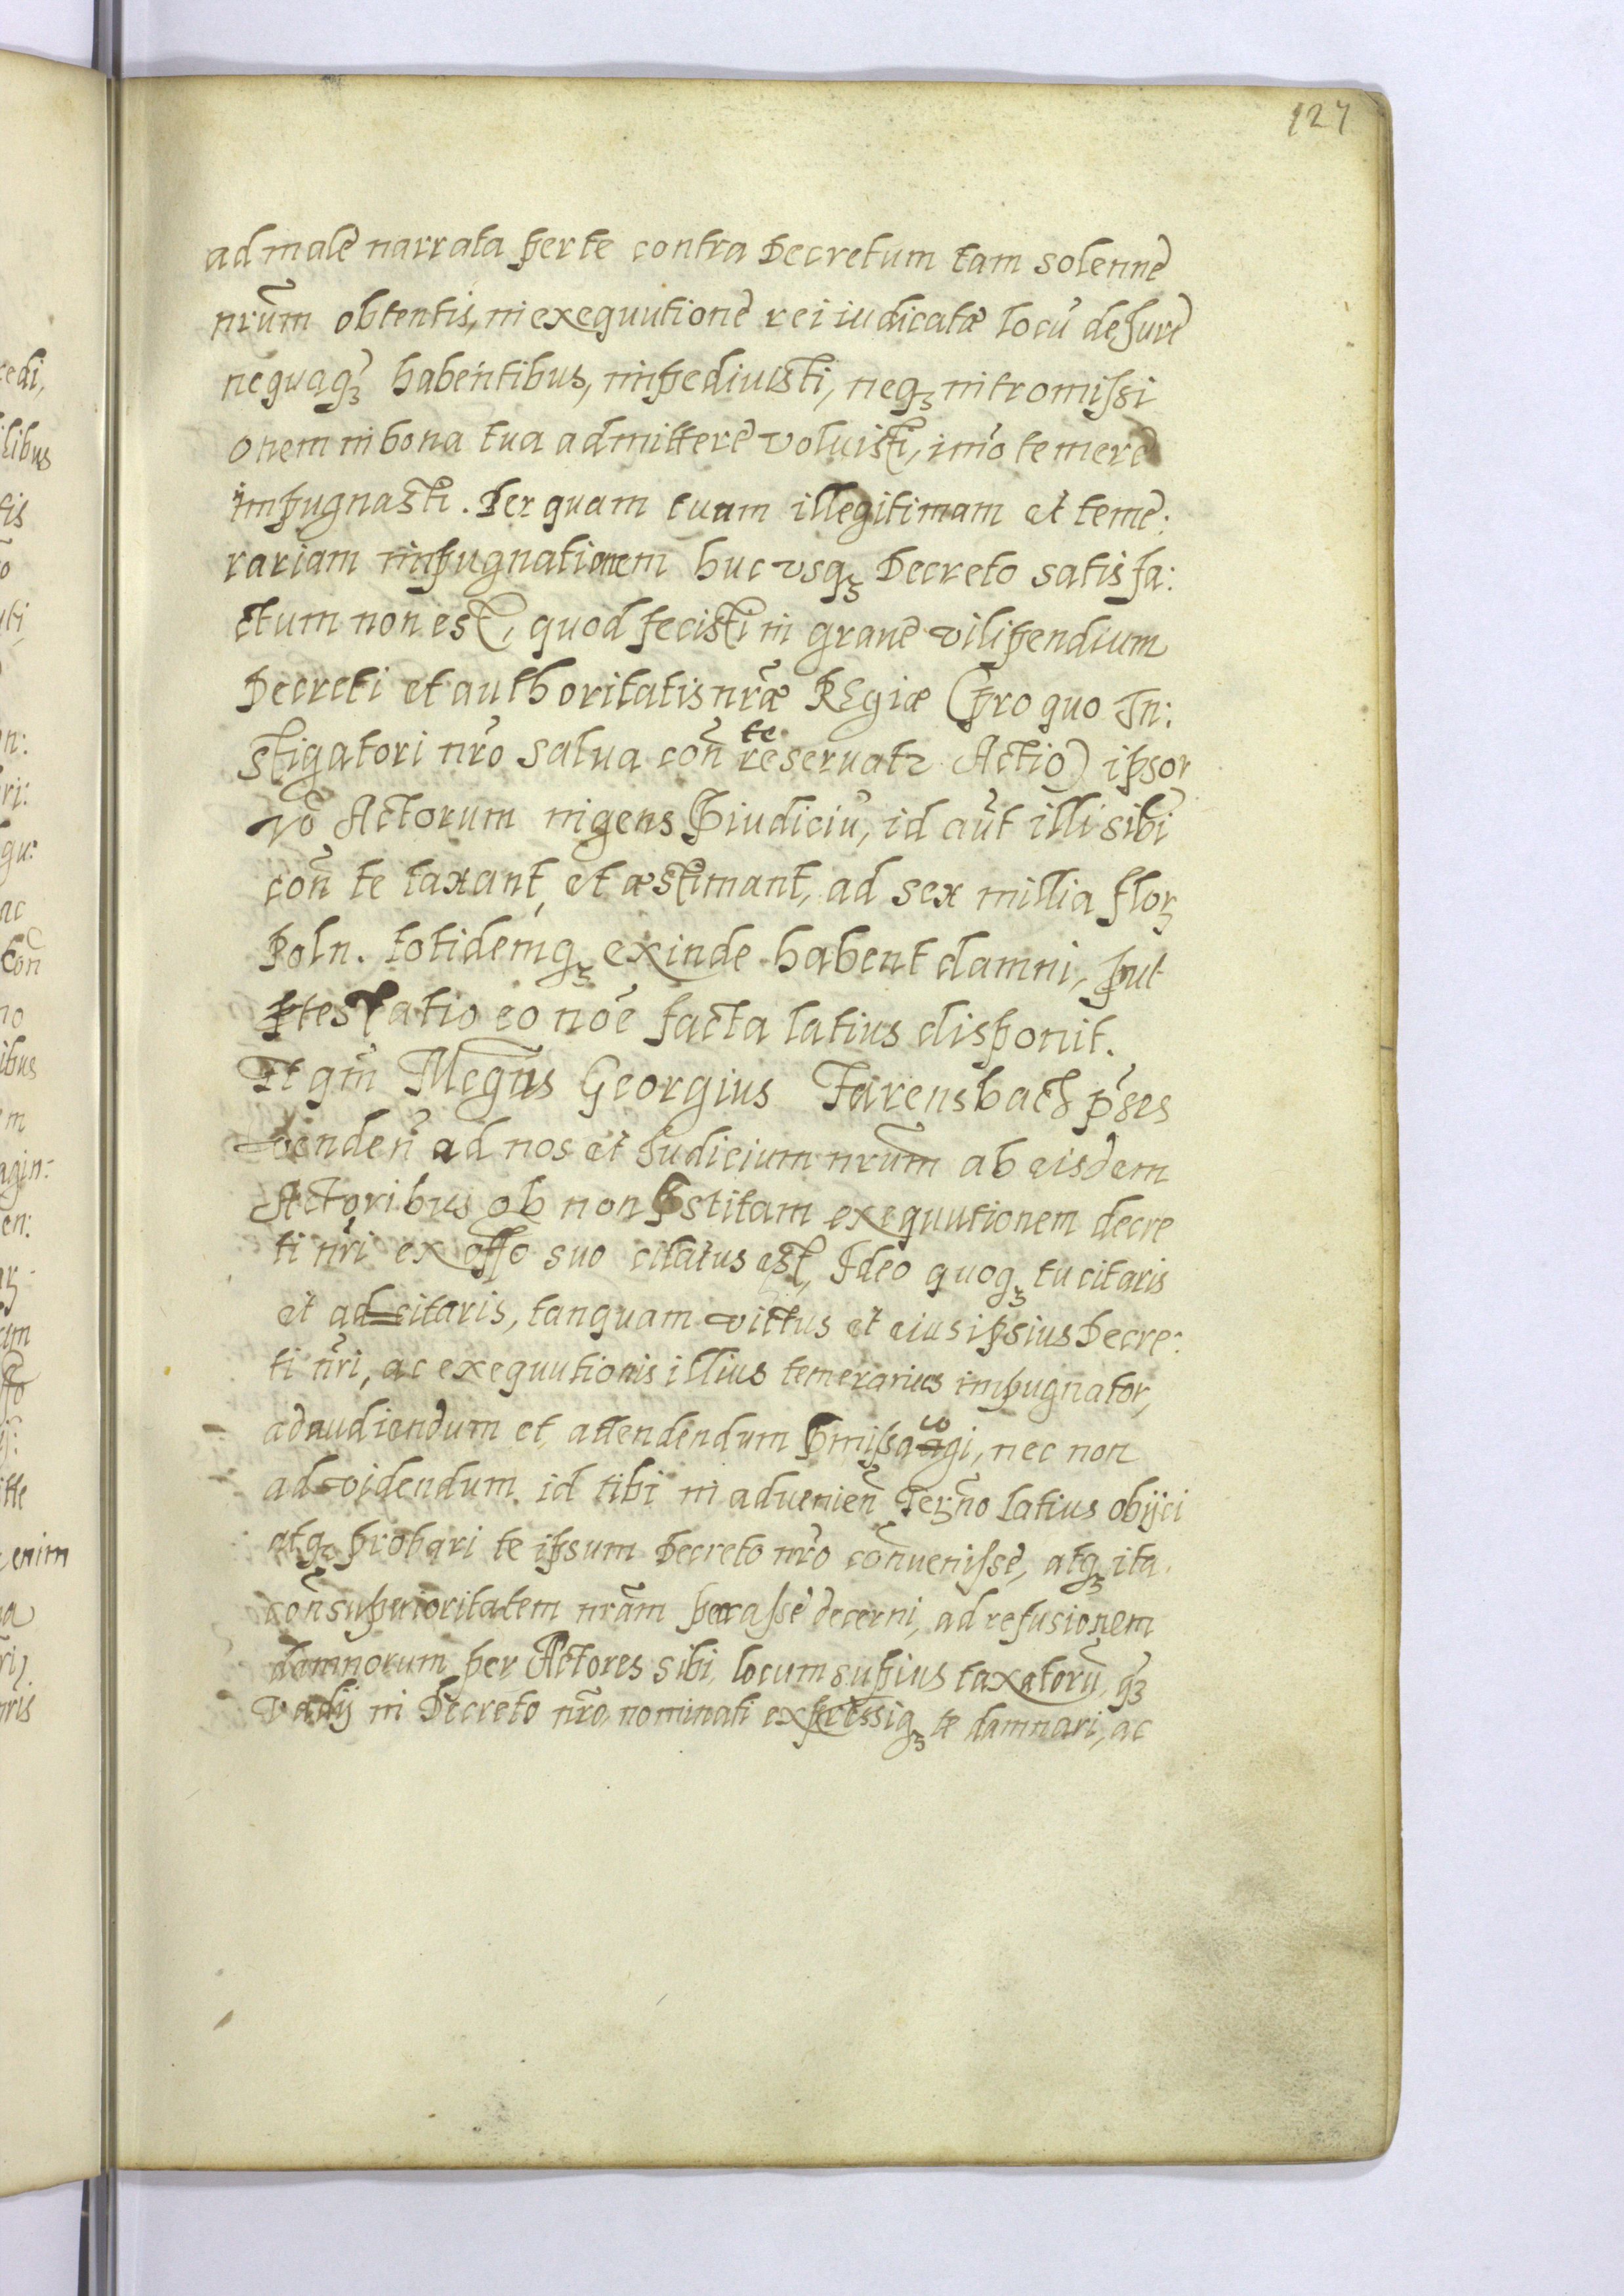 127
ad male narrata per te contra Decretum tam solenne
nrũm obtentis, in exequutione rei iudicatæ locũ de Jure
nequaqꝫ habentibus, impediuisti, neqꝫ intromissi
onem in bona tua admittere voluisti, imo temere
impugnasti. Per quam tuam illegitimam et teme:
rariam impugnationem huc vsqꝫ Decreto satisfa:
ctum non est, quod fecisti in graue vilipendium
Decreti et authoritatis nrãe Regiæ (pro quo In:
stigatori nrõ salua coñ te reseruatr Actio) ipsor
võ Actorum ingens p̄iudiciũ, id aũt illi sibi
coñ te taxant, et æstimant, ad sex millia florꝫ
Poln. totidemqꝫ exinde habent damni, put
ptestatio eo noẽ facta latius disponit.
Et qm̃ Mcgñs Georgius Farensbach pͬses
venden̄ ad nos et Judicium nrũm ab eisdem
Actoribus ob non p̄stitam exequutionem decre
ti nr̃i ex offo suo citatus est, Ideo quoqꝫ tu citaris
et ad=citaris, tanquam victus et eius ipsius Decre:
ti nr̃i, ac exequutionis illius temerarius impugnator,
ad audiendum et attendendum p̄missa cogi, nec non
ad videndum id tibi in aduenien̄ Terꝫno latius obijci
atqꝫ probari te ipsum Decreto nrõ conuenisse, atqꝫ ita
coñ supuioritatem nrãm peccasse decerni, ad refusionem
damnorum per Actores sibi locum supius taxatorũ, qꝫ
vadij in Decreto nrõ nominati expressiqꝫ te damnari, ac